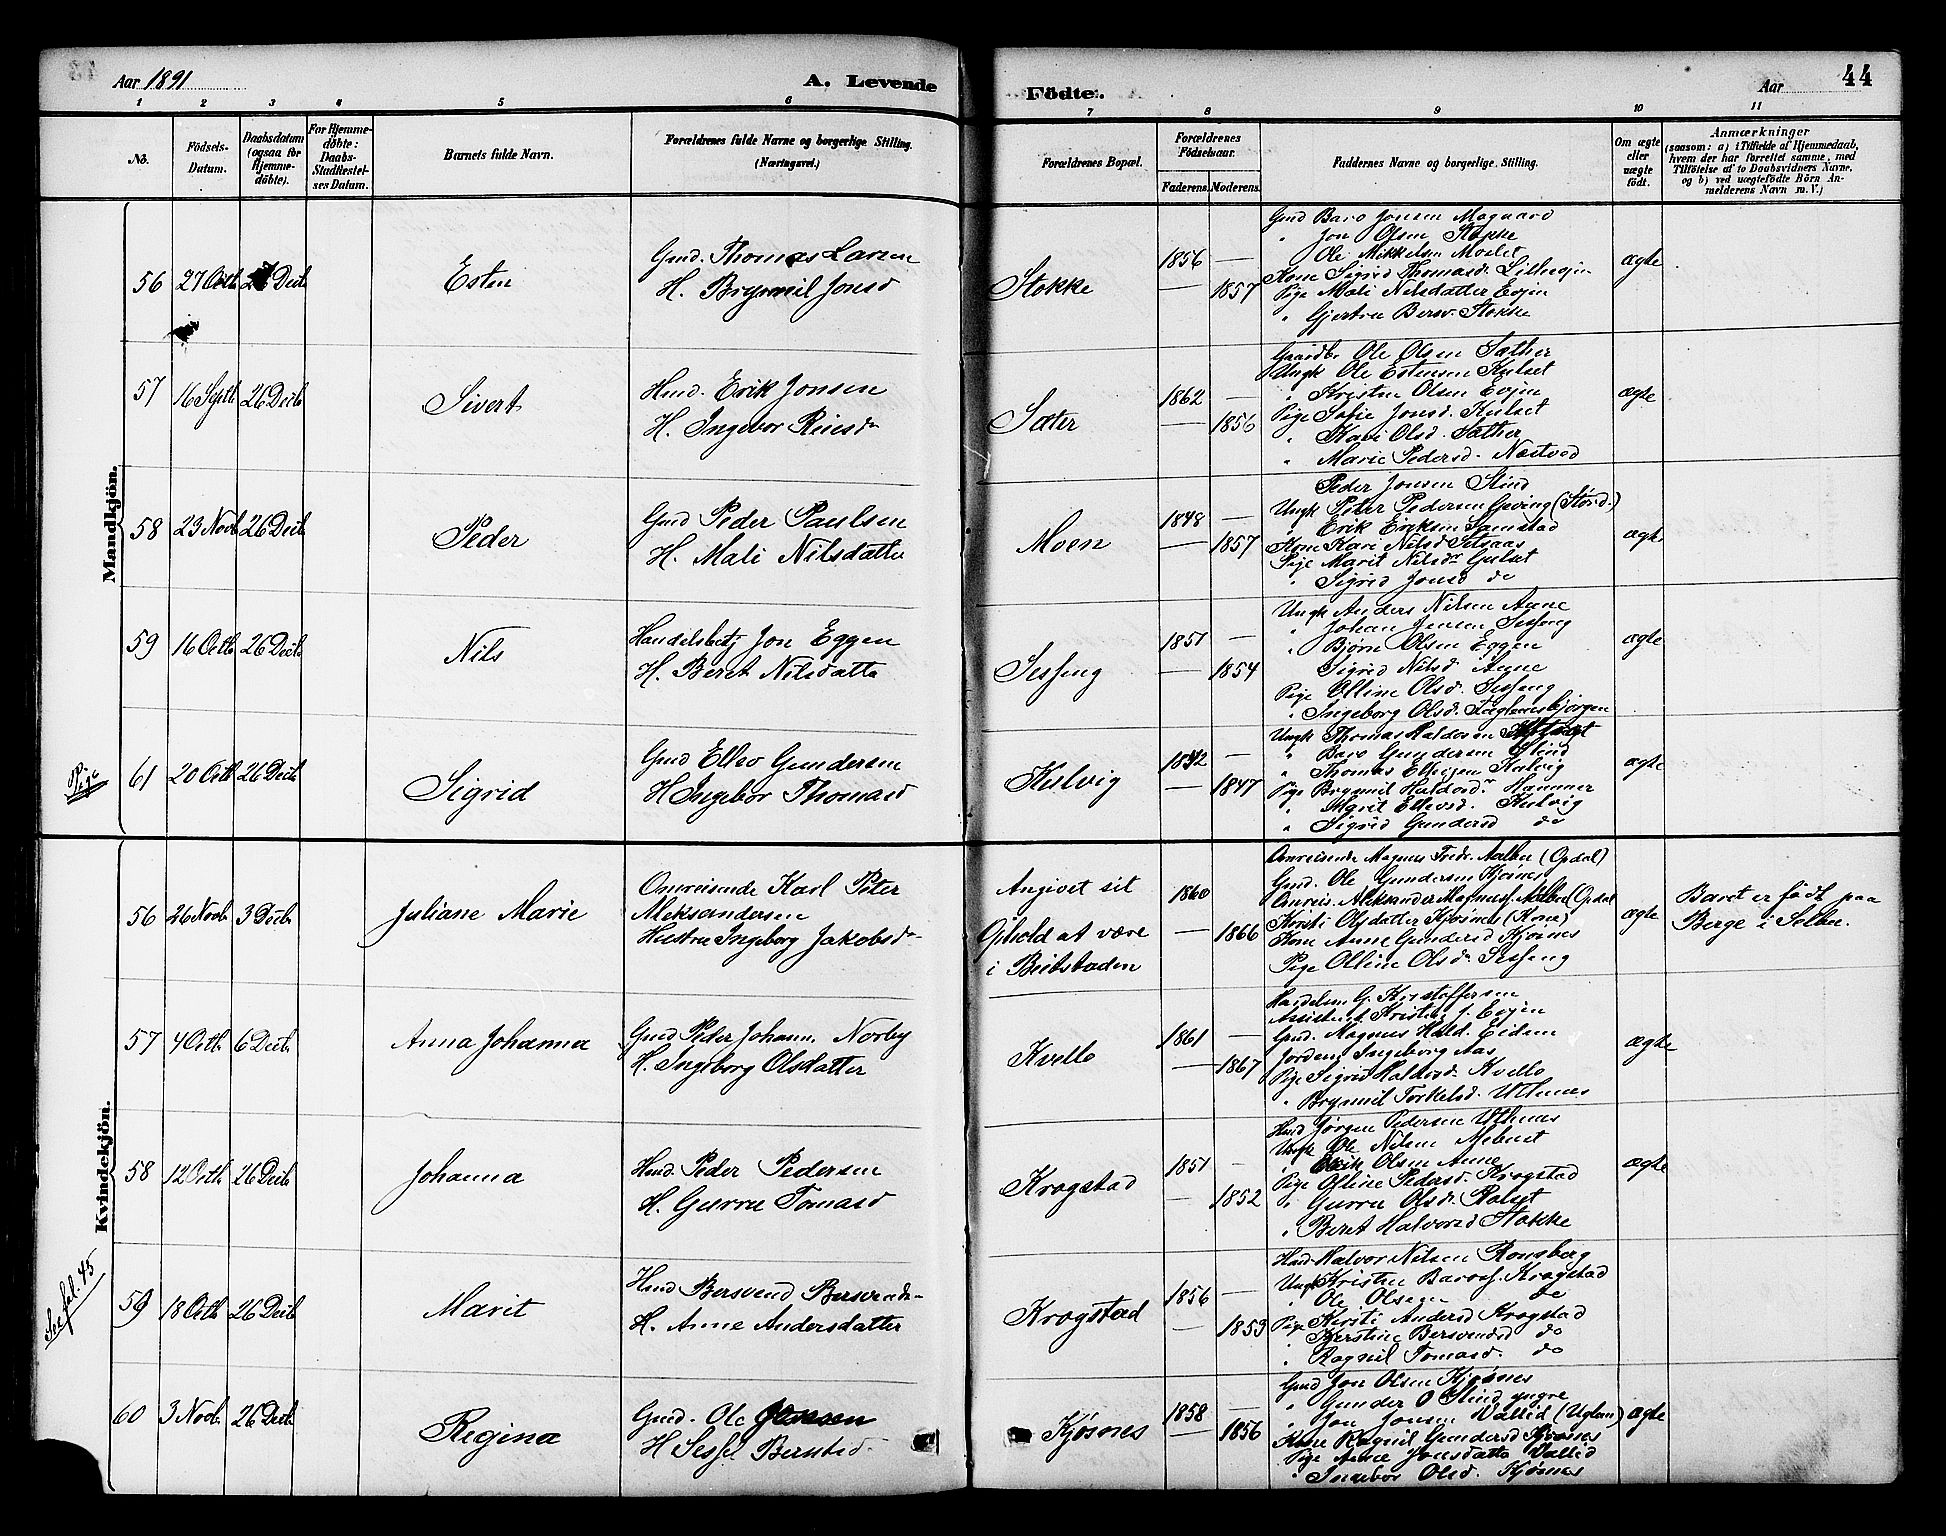 Aar 1891
A. Levende
Födte.
Aar
44
1 2 3 4 5 6 7 8 9 10 11
No.
Födsels-Datum.
Daabsdatum (ogsaa for Hjemme-döbte).
For Hjemme-döbte: Daabs-Stadfæstel-ses Datum.
Barnets fulde Navn.
Forældrenes fulde Navne og borgerlige Stilling. (Næringsvei.)
Forældrenes Bopæl.
Forældrenes Födselsaar.
Faderens. Moderens.
Faddernes Navne og borgerlige Stilling.
Om ægte eller uægte födt.
Anmærkninger
(saasom: a) i Tilfælde af Hjemmedaab, hvem der har forrettet samme, med Tilföielse af to Daabsvidners Navne, og b) ved uægtefödte Börn An-melderens Navn m. V.)
Mandkjön.
56 27 Octb Decb Esten
Gmd. Thomas Larsen
H. Brynnil Jonsd
Stokke
1856 —
— 1857
Gmd Baro Jonsen Mogaard
" Jon Olsen Stokke
Ole Mikkelsen Moslet
Kone Sigrid Thomasd.
Pige Mali Nilsdatter Evjen
" Gjertru Bersv. Stokke
ægte
57 16 Septb 26 Decb Sivert
Hmd. Erik Jonsen
H. Ingebor
Sæter
1862 —
— 1856
Gaardbr Ole Olsen Sæther
Ungk Ole Estensen Kulset
" Kristen Olsen Evjen
Pige Sofie Jonsd. Kulset
" Kari Olsd. Sæther
" Marie Pedersd. Næstvod
ægte
58 23 Novb 26 Decb Peder
Gmd Peder Paulsen
H. Mali Nilsdatter
Moen
1848 —
— 1857
Peder Jonsen Slind
Ungk Peter Pedersen Geving (Störd.)
Erik Eriksen Samstad
Kone Kari Nilsd Setsaas
Pige Marit Nilsdr Gulset
" Sigrid Jonsd do
ægte
59 16 Octb 26 Decb Nils
Handelsbetj Jon Eggen
H. Beret Nilsdatte
Sesseng
1851 —
— 1854
Ungk Anders Nilsen Aune
" Johan Jensen Sesseng
" Bjørn Olsen Eggen
Sigrid Nilsd Aune
Pige Olline Olsd. Sesseng
" Ingeborg Olsd.
ægte
Pige
61 20 Octb 26 Decb Sigrid
Gmd Ellev Gundersen
H Ingebor Thomasd
Kulvig
1842 —
— 1847
Ungk Thomas Haldorsen
" Baro Gundersen Slind
" Thomas Ellevsen Kulvig
Pige Brynnil Haldorsdr Hammer
" Marit Ellevsd. Kulvig
" Sigrid Gundersd do
ægte
Kvindekjön.
See fol. 45
56 26 Novb 3 Decb Juliane Marie
Omreisende Karl Peter
Aleksandersen
Hustru Ingeborg Jakobsdr
Angivet sit
Ophold at være
i Beitstaden
1860
— 1866
Omreisende Magnus Fredr. Aalber (Opdal)
Gmd. Ole Gundersen Kjøsnes
Omreis. Aleksander Magnuss. Aalber (Opdal
Kirsti Olsdatter Kjøsnes (Kone)
Kone Anne Gundersd Kjøsnes
Pige Olline Olsdr Sesseng
ægte
Barnet er født paa
Berge i Selbu.
57 4 Octb 6 Decb Anna Johanna
Gmd Peder Johann. Norby
H. Ingeborg Olsdatter
Kvello
1861 —
— 1867
Handelsm G. Kristoffersen
Assistent Kristen J. Evjen
Gmd. Magnus Hald. Eidem
Jordem Ingeborg Aas
Pige Sigrid Haldorsd. Kvello
" Brynnil Torkelsd. Uthnes
ægte
58 12 Octb 26 Decb Johanna
Hmd Peder Pedersen
H. Gurru Tomasd
Kragstad
1851 —
— 1852
Hmd Jørgen Pedersen Uthus
Ungk Ole Nilsen Mebust
" Erik Olsen Aune
Pige Olline Pedersd. Kragstad
" Gurru Olsd. Rolset
" Beret Halvorsd Stokke
ægte
59 18 Octb 26 Decb Marit
Hmd Bersvend Bersvends.
H. Anne Andersdatter
Kragstad
1856 —
— 1859
Hmd Halvor Nilsen Ronsberg
Ungk Kristen Barosf. Kragstad
" Ole Olsen do
Pige Kirsti Andersd Kragstad
" Kerstine Bersvendsd do
" Ragnil Tomasd. do
60 3 Novb 26 Decb Regina
Gmd. Ole Jensen
H Sessel
Kjøsnes
1858 —
— 1856
Gmd Jon Olsen Kjøsnes
" Gunder O Slind yngre
" Jon Jonsen Vallid (Uglan)
Kone Ragnil Gundersd Kjøsnes
Pige Anne Jonsdatte Vallid
" Ingebor Olsd. Kjøsnes
ægte